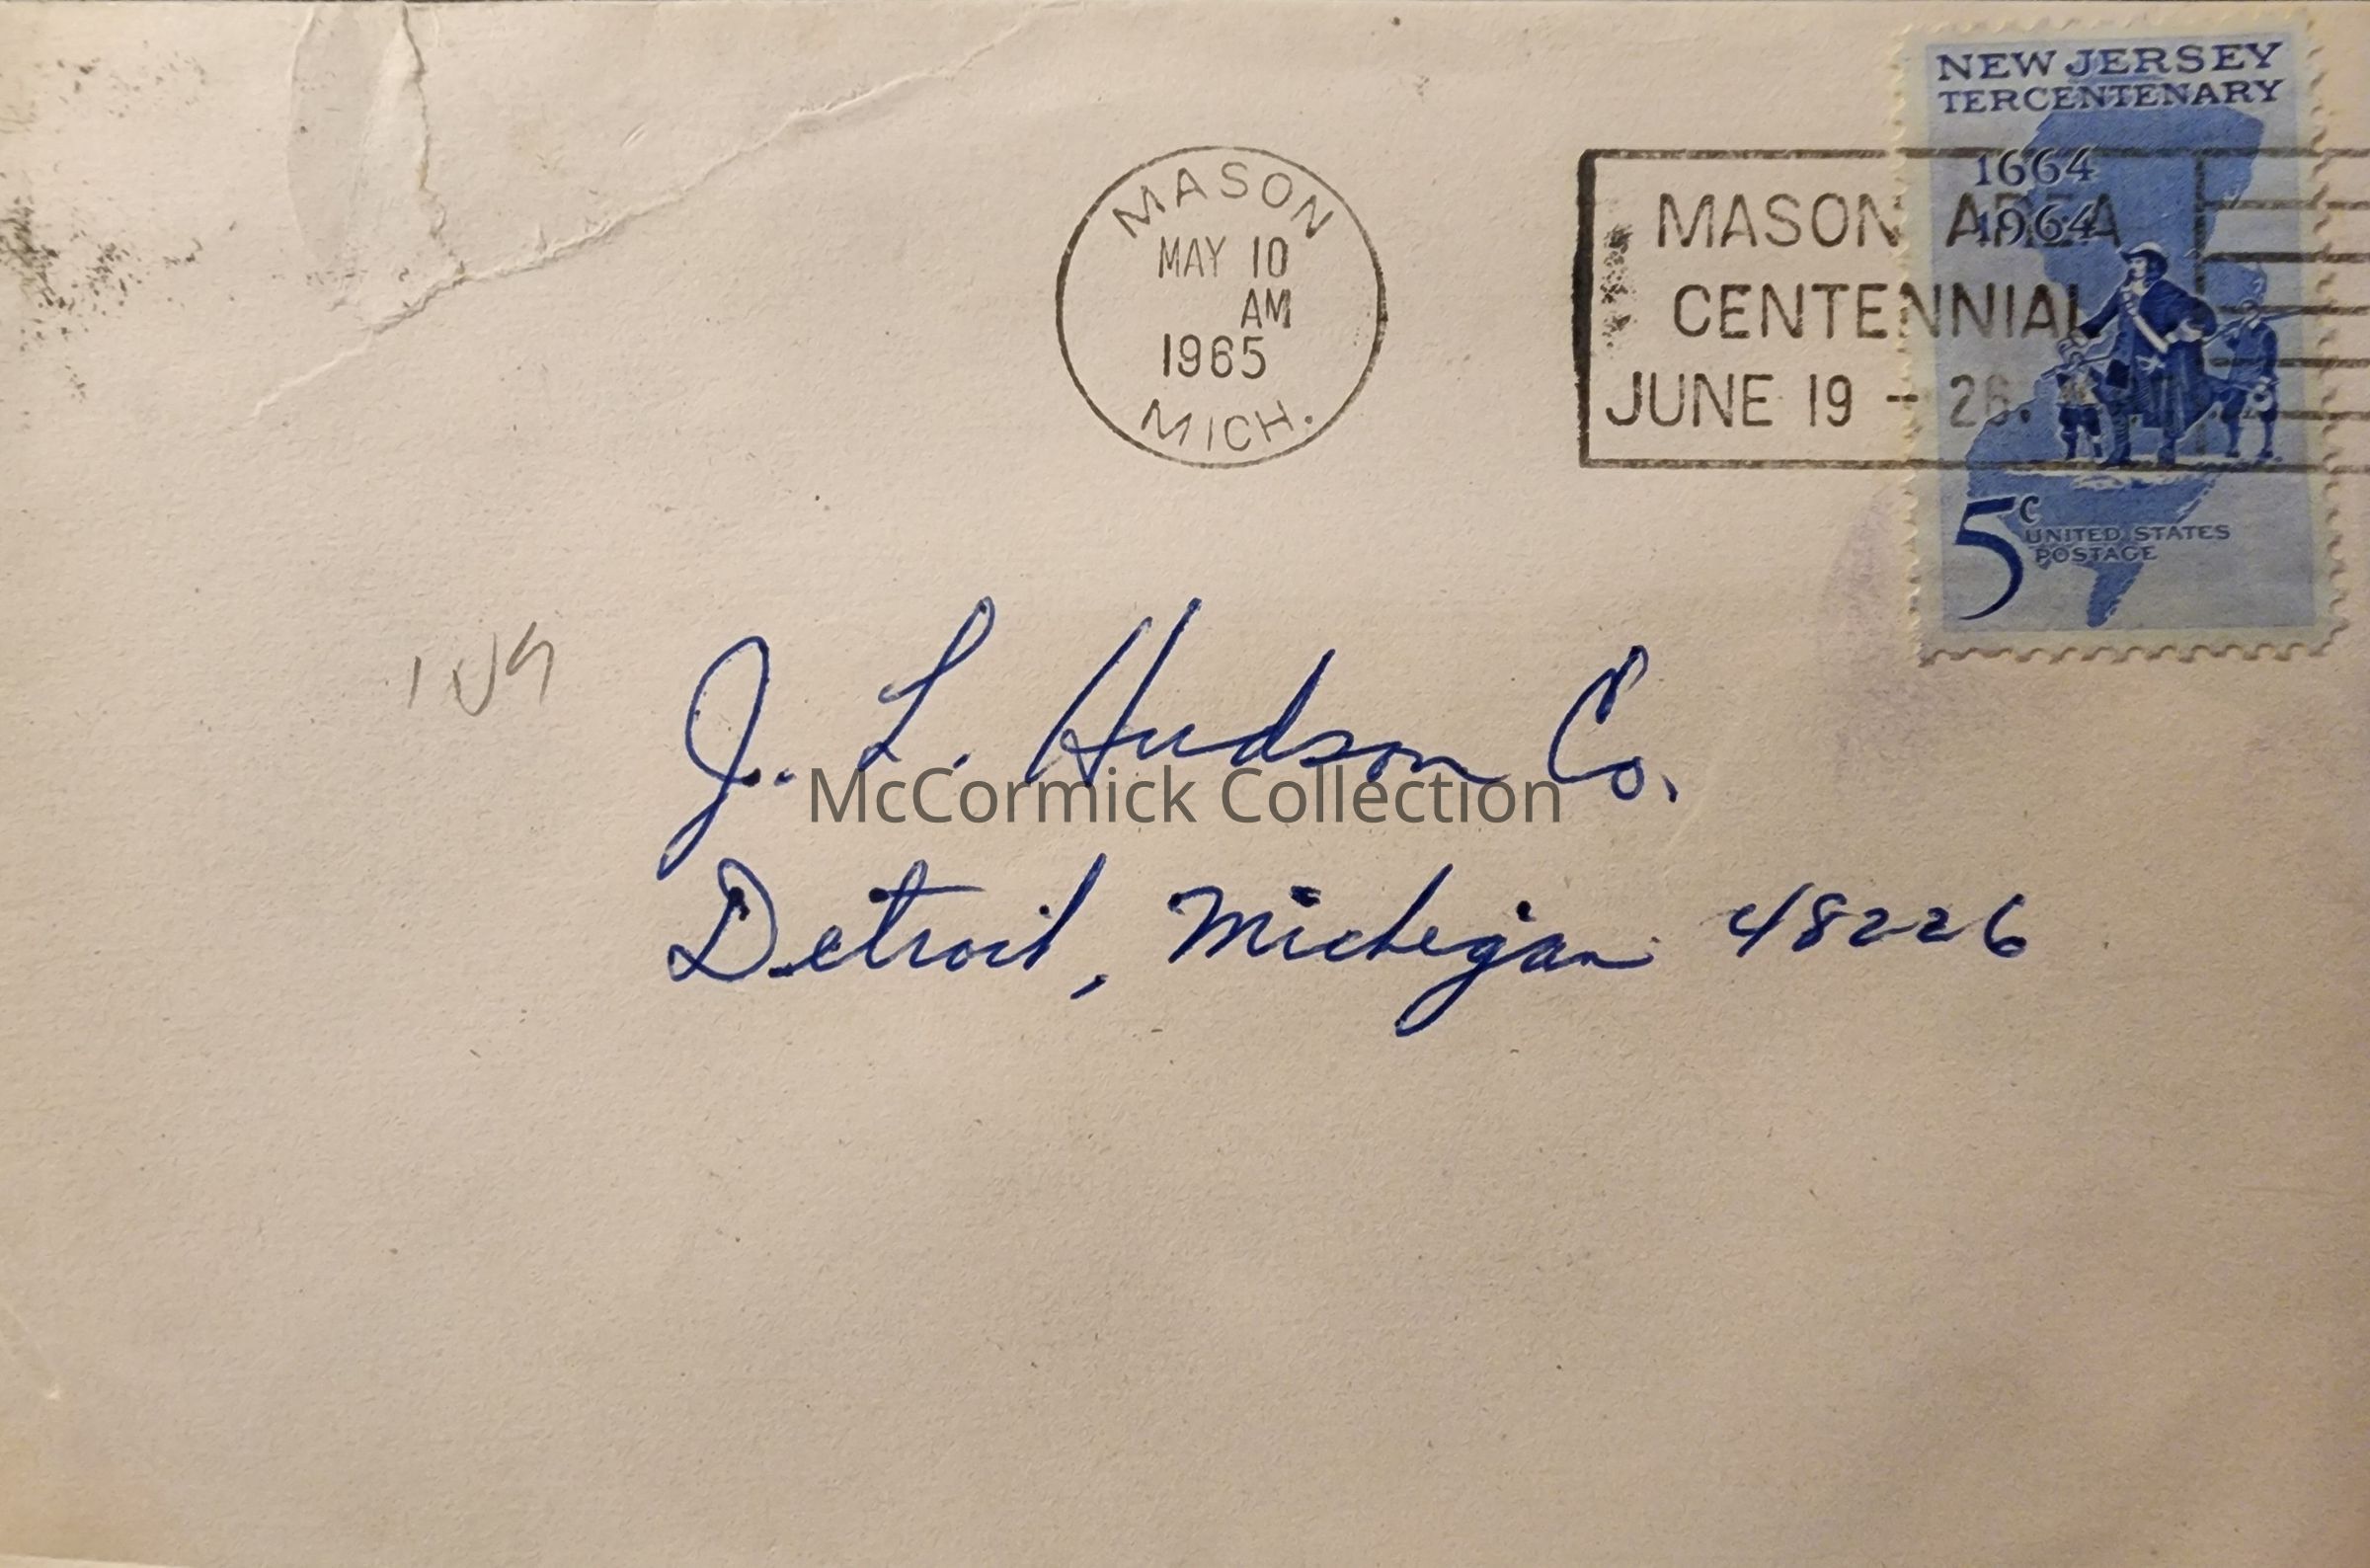 NEW JERSEY
TERCENTENARY
1664
1964
MASON
MAY 10
AM
1965
MICH.
MASON AREA
CENTENNIAL
JUNE 19 - 26.
5c
UNITED STATES
POSTAGE
J. L. Hudson Co.
McCormick Collection
Detroit, Michigan 48226